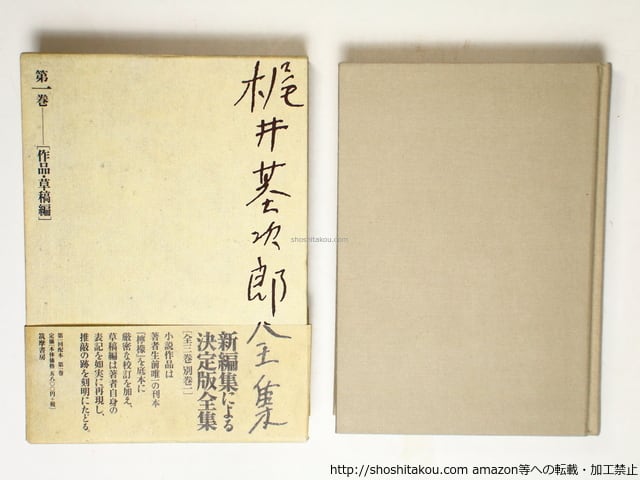 梶井基次郎全集
第一巻──[作品・草稿編]
新編集による
決定版全集
[全三巻 別巻一]
小説作品は
著者生前唯一の刊本
『檸檬』を底本に
厳密な校訂を加え、
草稿編は著者自身の
表記を如実に再現し、
推敲の跡を刻明にたどる。
第一回配本 第一巻
筑摩書房
shoshitakou.com
http://shoshitakou.com amazon等への転載・加工禁止